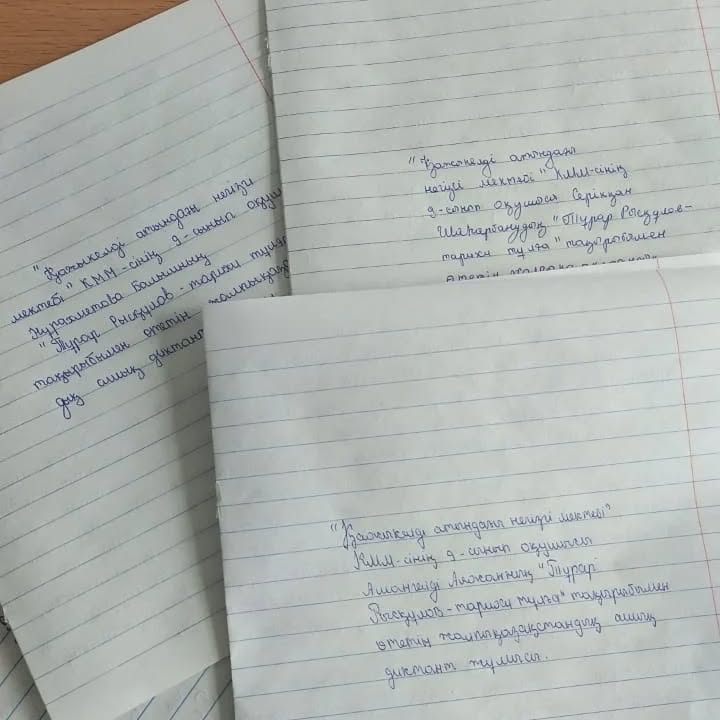 "Қажыкелді атындағы негізгі
мектебі" КММ-сінің 9-сынып
Нурахметова Балымның
"Тұрар Рысқұлов-тарихи тұлға
тақырыбымен өтетін
дық ашық диктант
"Қажыкелді атындағы
негізгі мектебі" КММ-сінің
9-сынып оқушысы Серікқан
Шаһарбанудың "Тұрар Рысқұлов-
тарихи тұлға" тақырыбымен
"Қажыкелді атындағы негізгі мектебі"
КММ-сінің 9-сынып оқушысы
Амангелді "Тұрар
Рысқұлов-тарихи тұлға" тақырыбымен
өтетін жалпықазақстандық ашық
диктант жұмысы.